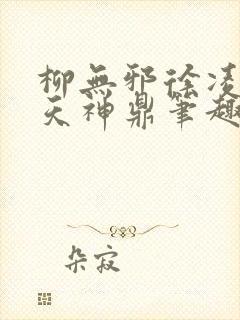 柳無邪徐凌
天神鼎筆趣
朵寂